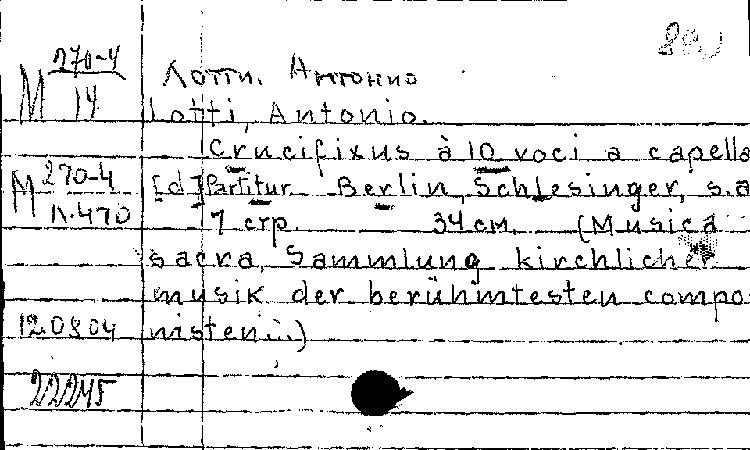 М 270-4/14
Лотти, Антонио
Lotti, Antonio.
Crucifixus à 10 voci a capella
М 270-4/п.470
[d] Partitur. Berlin, Schlesinger, s.a
7 стр. 34 см. (Musica
sacra, Sammlung kirchlicher
musik der berühmtesten compo-
12.0804
nisten...)
22245